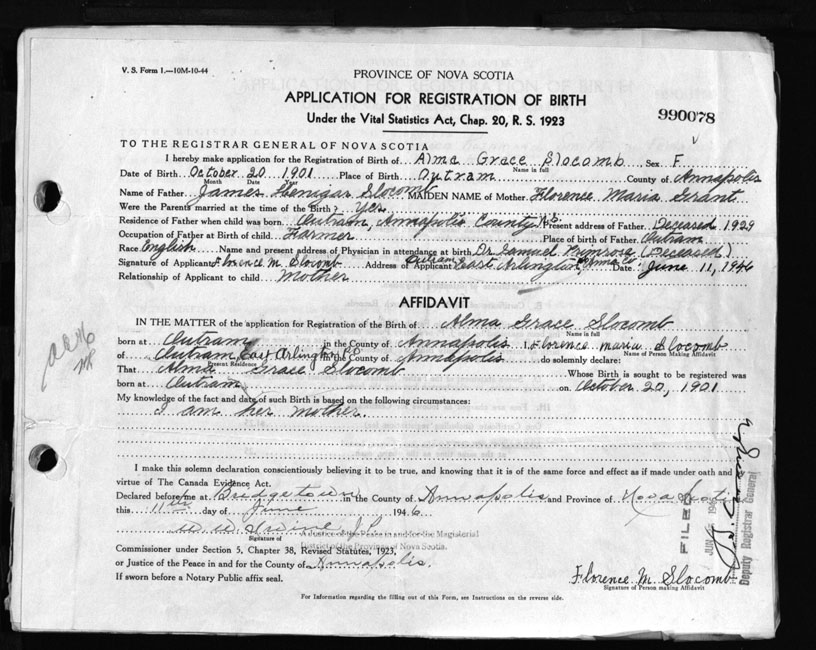 V. S. Form 1.—10M-10-44
PROVINCE OF NOVA SCOTIA
APPLICATION FOR REGISTRATION OF BIRTH
Under the Vital Statistics Act, Chap. 20, R. S. 1923
990078
TO THE REGISTRAR GENERAL OF NOVA SCOTIA
I hereby make application for the Registration of Birth of Alma Grace Slocomb Sex F
Name in full
Date of Birth October 20 1901 Place of Birth Outram County of Annapolis
Month Date Year
Name of Father James Slocomb MAIDEN NAME of Mother Florence Maria Grant
Were the Parents married at the time of the Birth? Yes
Residence of Father when child was born Outram, Annapolis County N.S. Present address of Father Deceased 1929
Occupation of Father at Birth of Child Farmer Place of birth of Father Outram
Race English Name and present address of Physician in attendance at birth Dr. Samuel Primrose (Deceased)
Signature of Applicant Florence M. Slocomb Address of Applicant Outram East Arlington Date June 11, 1946
Relationship of Applicant to child Mother
AFFIDAVIT
IN THE MATTER of the application for Registration of the Birth of Alma Grace Slocomb
Name in full
born at Outram in the County of Annapolis I, Florence Maria Slocomb
Name of Person Making Affidavit
of Outram, East Arlington P.O in the County of Annapolis do solemnly declare:
Present Residence
That Alma Grace Slocomb Whose Birth is sought to be registered was
born at Outram on October 20, 1901
My knowledge of the fact and date of such Birth is based on the following circumstances:
I am her mother.
I make this solemn declaration conscientiously believing it to be true, and knowing that it is of the same force and effect as if made under oath and
virtue of The Canada Evidence Act.
Declared before me at Bridgetown in the County of Annapolis and Province of Nova Scotia
this 11th day of June 1946
W W Irvine J.P.
Signature of
A Justice of the Peace in and for the Magisterial
District of the Province of Nova Scotia.
Commissioner under Section 5, Chapter 38, Revised Statutes, 1923,
or Justice of the Peace in and for the County of Annapolis.
If sworn before a Notary Public affix seal.
Florence M. Slocomb
Signature of Person making Affidavit
For Information regarding the filling out of this Form, see Instructions on the reverse side.
FILED
JUN 1946
Deputy Registrar General